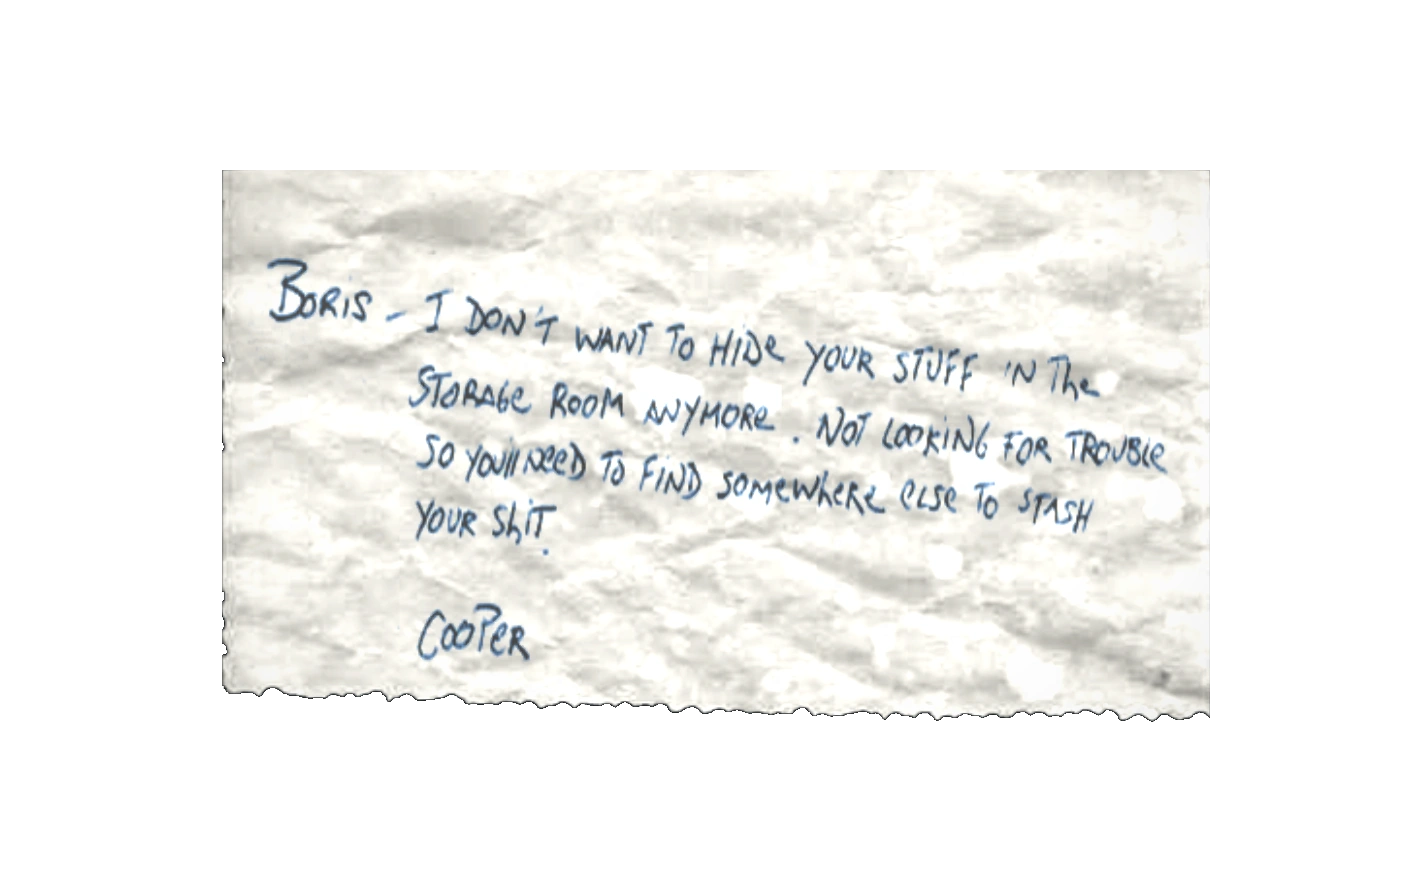 Boris - I DON'T WANT TO HIDe YOUR STUFF iN The
STORAGe ROOM ANYMORe. NOT LOOKiNG FOR TROUBLe
SO YOU'll NeeD TO FiND SOMewheRe eLSe TO STASH
YOUR ShiT.
CooPeR